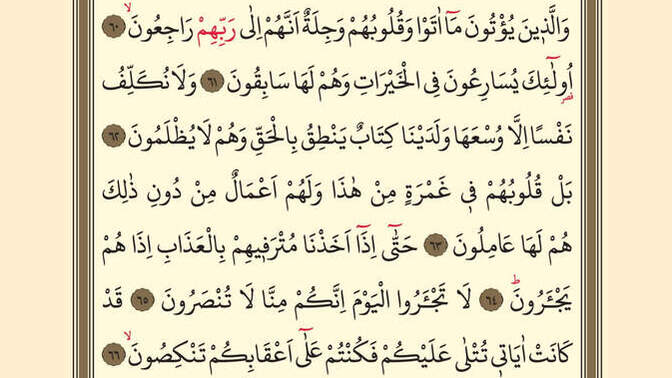 وَالَّذ۪ينَ يُؤْتُونَ مَٓا اٰتَوْا وَقُلُوبُهُمْ وَجِلَةٌ اَنَّهُمْ اِلٰى رَبِّهِمْ رَاجِعُونَۙ ﴿٦٠﴾
اُو۬لٰٓئِكَ يُسَارِعُونَ فِي الْخَيْرَاتِ وَهُمْ لَهَا سَابِقُونَ ﴿٦١﴾ وَلَا نُكَلِّفُ
نَفْسًا اِلَّا وُسْعَهَا وَلَدَيْنَا كِتَابٌ يَنْطِقُ بِالْحَقِّ وَهُمْ لَا يُظْلَمُونَ ﴿٦٢﴾
بَلْ قُلُوبُهُمْ ف۪ي غَمْرَةٍ مِنْ هٰذَا وَلَهُمْ اَعْمَالٌ مِنْ دُونِ ذٰلِكَ
هُمْ لَهَا عَامِلُونَ ﴿٦٣﴾ حَتّٰٓى اِذَٓا اَخَذْنَا مُتْرَف۪يهِمْ بِالْعَذَابِ اِذَا هُمْ
يَجْـَٔرُونَۜ ﴿٦٤﴾ لَا تَجْـَٔرُوا الْيَوْمَ اِنَّكُمْ مِنَّا لَا تُنْصَرُونَ ﴿٦٥﴾ قَدْ
كَانَتْ اٰيَات۪ي تُتْلٰى عَلَيْكُمْ فَكُنْتُمْ عَلٰٓى اَعْقَابِكُمْ تَنْكِصُونَۙ ﴿٦٦﴾